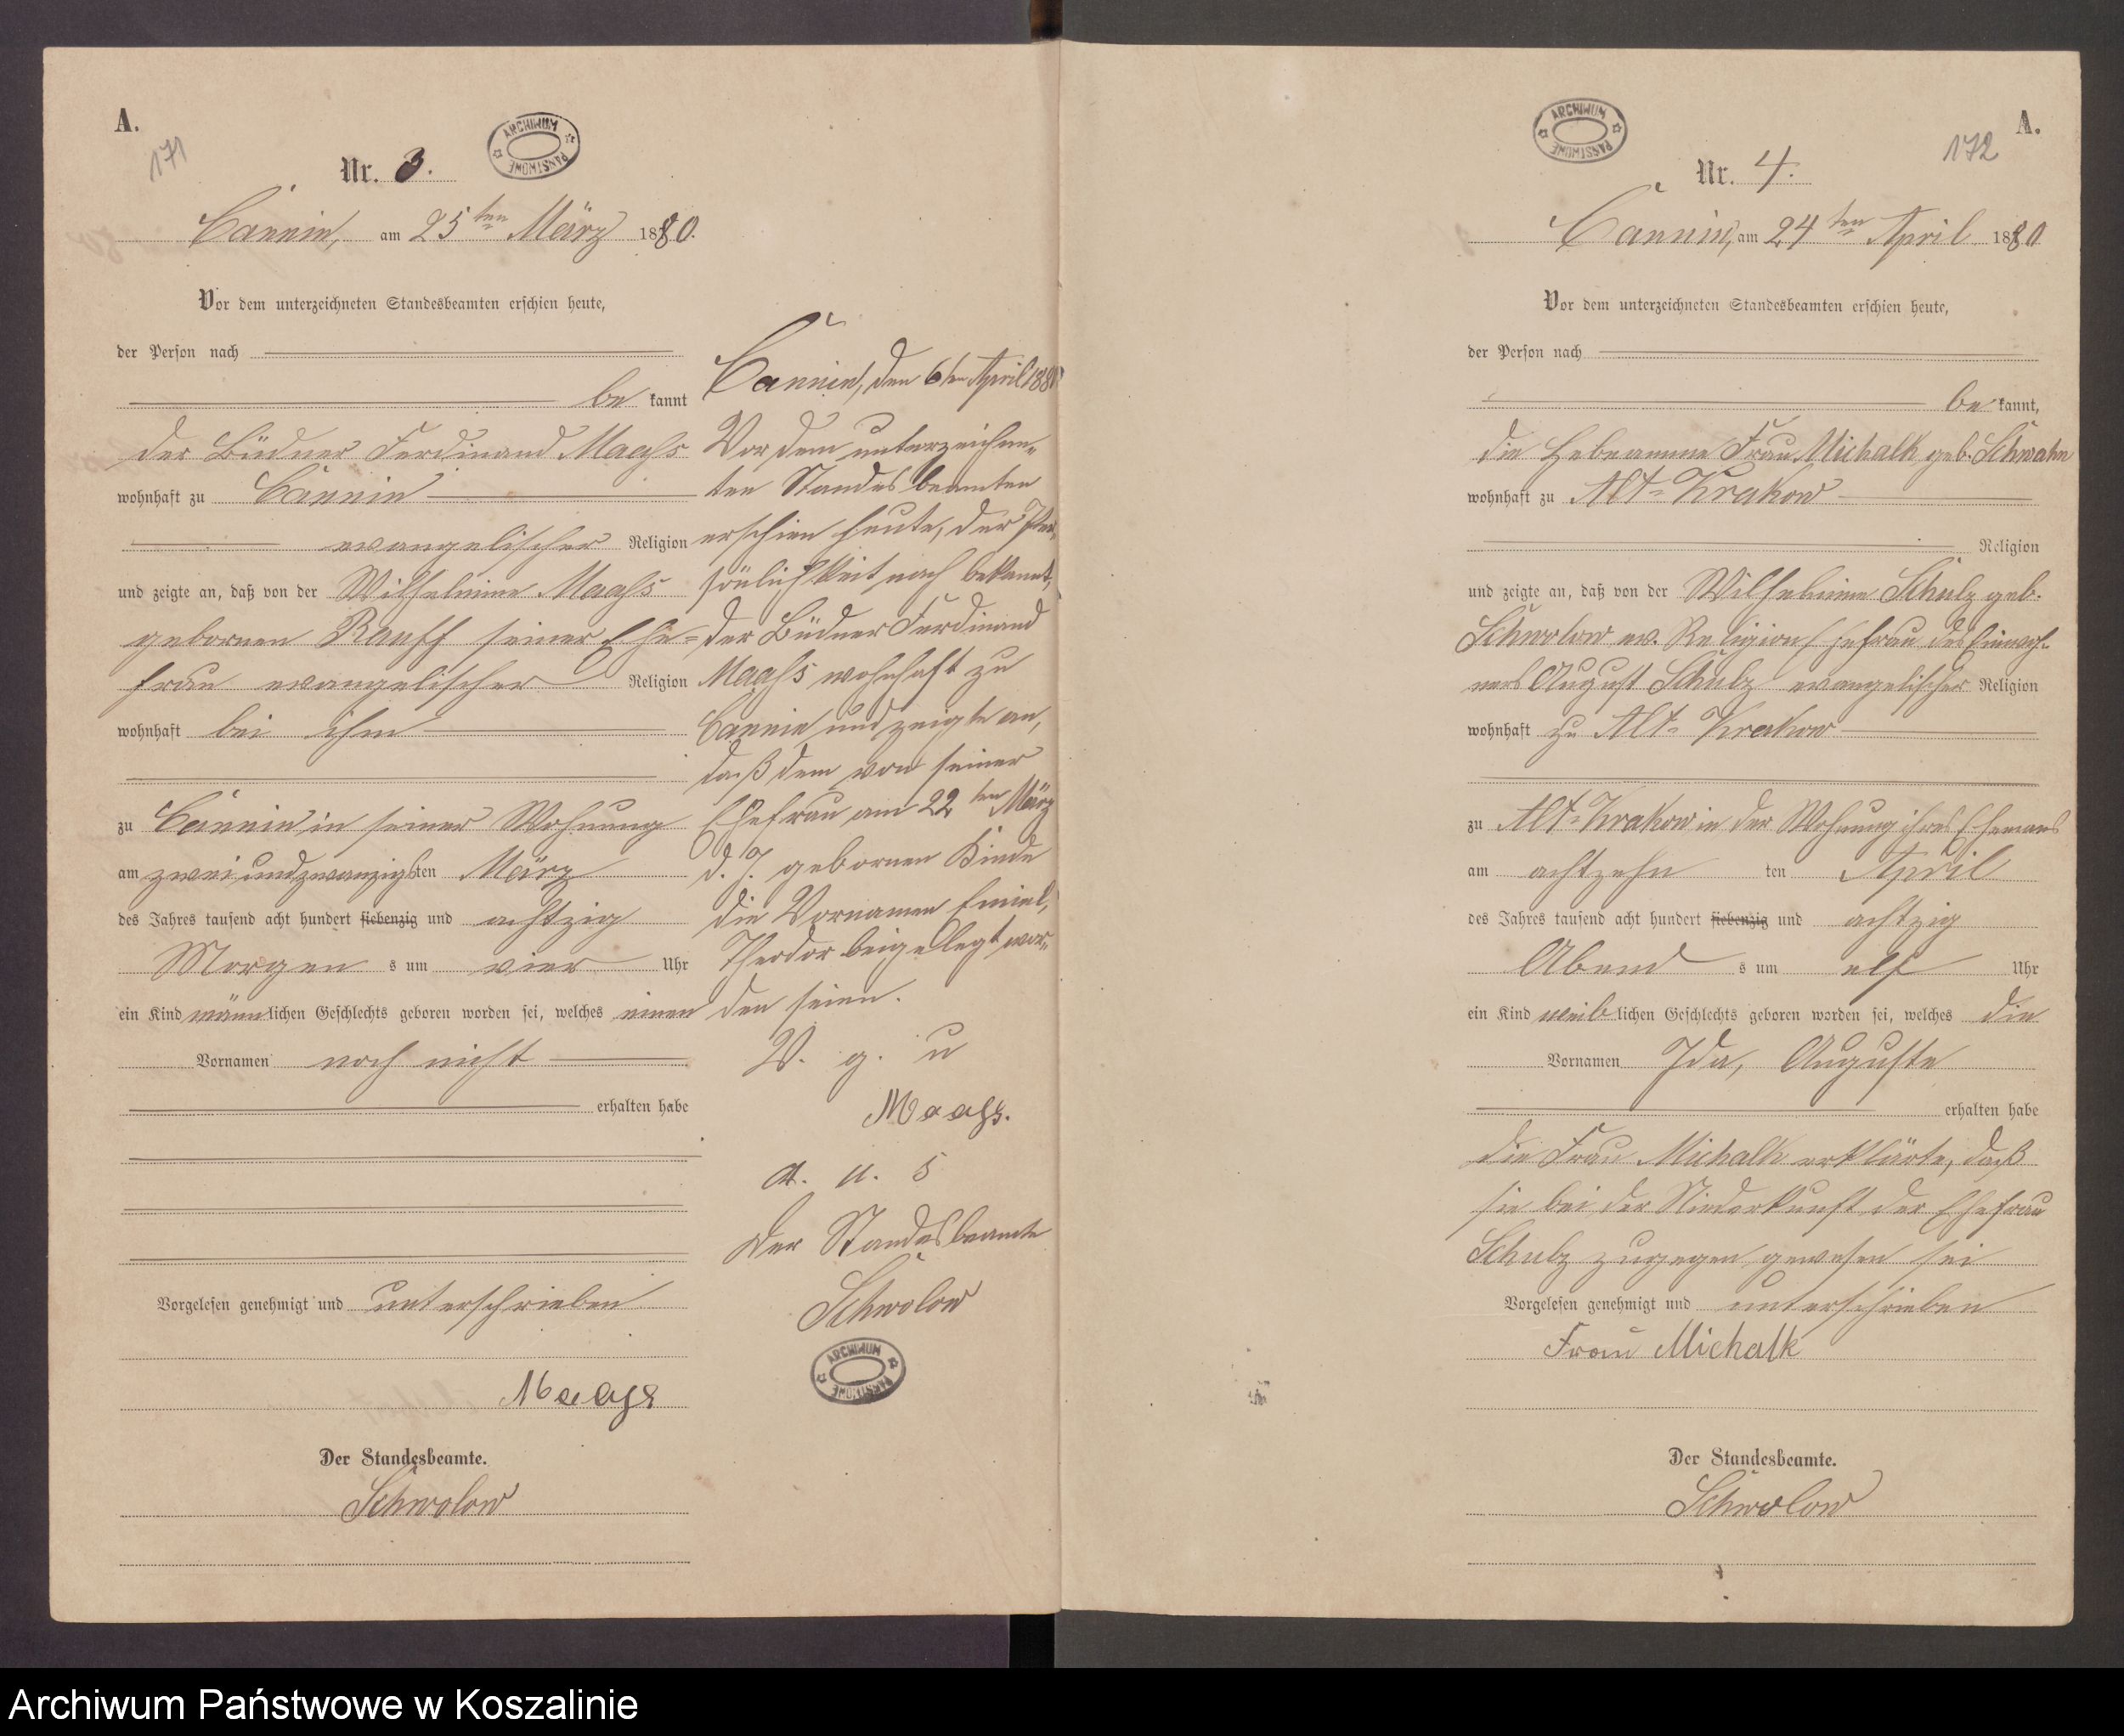 A.
171
Nr. 3.
ARCHIWUM PAŃSTWOWE
Cannin, am 25ten März 1880.
Vor dem unterzeichneten Standesbeamten erschien heute,
der Person nach
be kannt
der Büdner Ferdinand Maahs
wohnhaft zu Cannin
evangelischer Religion
und zeigte an, daß von der Wilhelmine Maahs
gebornen Rauff seiner Ehe=
frau evangelischer Religion
wohnhaft bei ihm
zu Cannin in seiner Wohnung
am zwei und zwanzigsten März
des Jahres tausend acht hundert siebenzig und achtzig
Morgen s um vier Uhr
ein Kind männlichen Geschlechts geboren worden sei, welches einen
Vornamen noch nicht
erhalten habe
Vorgelesen genehmigt und unterschrieben
Maahs
Der Standesbeamte.
Schwolow
Cannin, den 6ten April 1880
Vor dem unterzeichne-
ten Standesbeamten
erschien heute, der Per-
sönlichkeit nach bekannt,
der Büdner Ferdinand
Maahs wohnhaft zu
Cannin und zeigte an,
daß dem von seiner
Ehefrau am 22ten März
d. J. gebornen Kinde
die Vornamen Emiel,
Theodor beigelegt wor-
den seien.
V. g. u
Maahs.
a. u. s
Der Standesbeamte
Schwolow
ARCHIWUM PAŃSTWOWE
ARCHIWUM PAŃSTWOWE
A.
172
Nr. 4.
Cannin, am 24ten April 1880
Vor dem unterzeichneten Standesbeamten erschien heute,
der Person nach
be kannt,
die Hebeamme Frau Michalk geb. Schwahn
wohnhaft zu Alt-Krakow
Religion
und zeigte an, daß von der Wilhelmine Schulz geb.
Schwolow ev. Religion Ehefrau des Einwoh-
ners August Schulz evangelischer Religion
wohnhaft zu Alt-Krakow
zu Alt-Krakow in der Wohnung ihres Ehemans
am achtzehn ten April
des Jahres tausend acht hundert siebenzig und achtzig
Abend s um elf Uhr
ein Kind weiblichen Geschlechts geboren worden sei, welches die
Vornamen Ida, Auguste
erhalten habe
die Frau Michalk erklärte, daß
sie bei der Niederkunft der Ehefrau
Schulz zugegen gewesen sei
Vorgelesen genehmigt und unterschrieben
Frau Michalk
Der Standesbeamte.
Schwolow
Archiwum Państwowe w Koszalinie